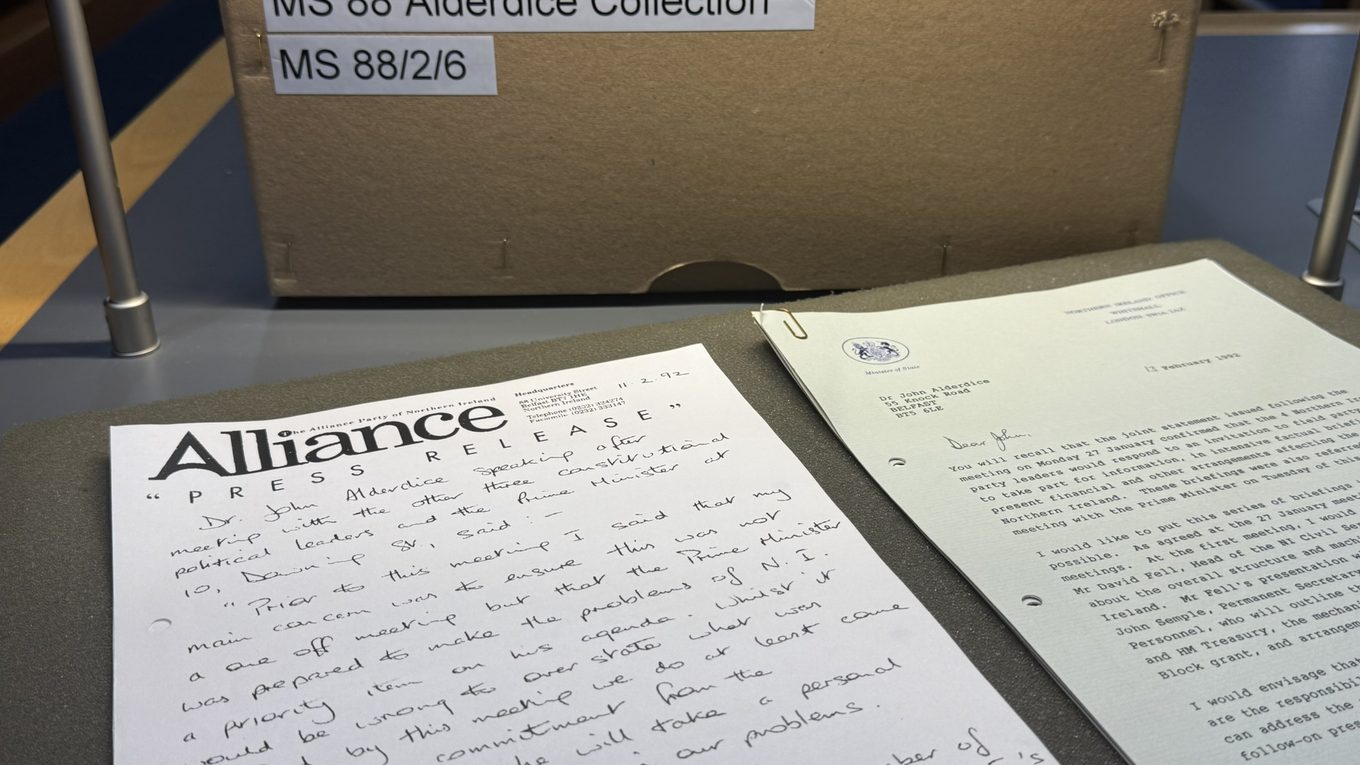 MS 88 Alderdice Collection
MS 88/2/6
The Alliance Party of Northern Ireland
Alliance
Headquarters
88 University Street
Belfast BT7 1HE
Northern Ireland
Telephone (0232) 324274
Facsimile (0232) 333147
11.2.92
" PRESS RELEASE "
Dr. John Alderdice speaking after
meeting with the other three constitutional
political leaders and the Prime Minister at
10, Downing St, said :-
" Prior to this meeting I said that my
main concern was to ensure this was not
a one off meeting but that the Prime Minister
was prepared to make the problems of N. I.
a priority item on his agenda. Whilst it
would be wrong to over state what was
by this meeting we do at least come
commitment from the
he will take a personal
our problems.
ber of
NORTHERN IRELAND OFFICE
WHITEHALL
LONDON SW1A 2AZ
Minister of State
13 February 1992
Dr John Alderdice
55 Knock Road
BELFAST
BT5 6LE
Dear John,
You will recall that the joint statement issued following the
meeting on Monday 27 January confirmed that the 4 Northern Ir
party leaders would respond to an invitation to field party
to take part for information in intensive factual briefi
present financial and other arrangements affecting the
Northern Ireland. These briefings were also referre
meeting with the Prime Minister on Tuesday of this
I would like to put this series of briefings i
possible. As agreed at the 27 January meet
meetings. At the first meeting, I would
Mr David Fell, Head of the NI Civil Ser
about the overall structure and mach
Ireland. Mr Fell's presentation w
John Semple, Permanent Secretary
Personnel, who will outline th
and HM Treasury, the mechan
Block grant, and arrangem
I would envisage tha
are the responsibi
can address the
follow-on pres